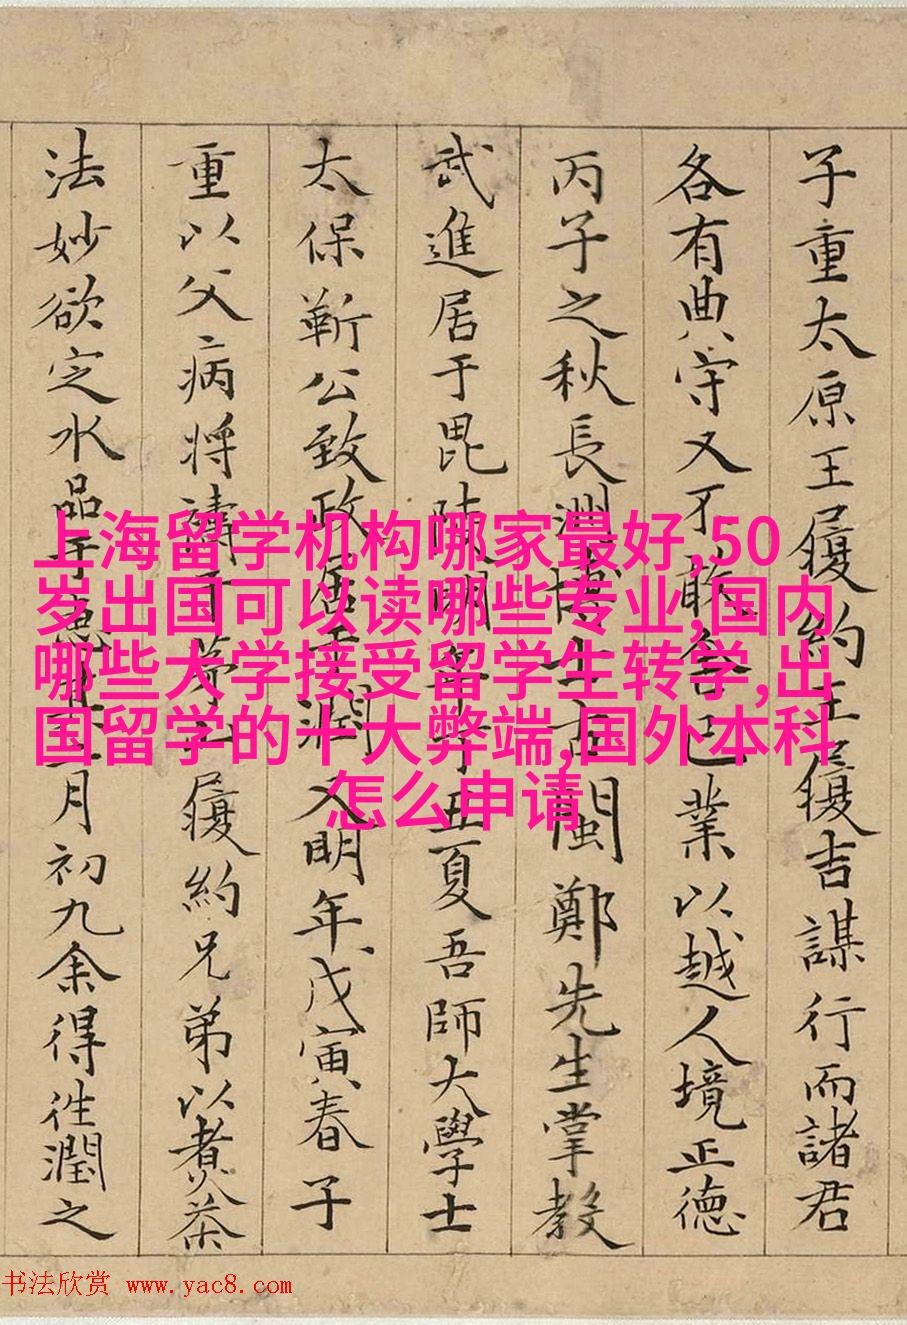 子重太原王履約王履吉謀行而諸君
各有典守又不敢舍己業以越人境正德
丙子之秋長洲博士古閩鄭先生掌教
武進居于毘陵明年丁丑夏吾師大學士
太保靳公致政居于潤又明年戊寅春子
重以父病將禱于茅山履約兄弟以煮茶
法妙欲定水品于惠月初九余得往潤之
上海留学机构哪家最好,50
岁出国可以读哪些专业,国内
哪些大学接受留学生转学,出
国留学的十大弊端,国外本科
怎么申请
书法欣赏 www.yac8.com